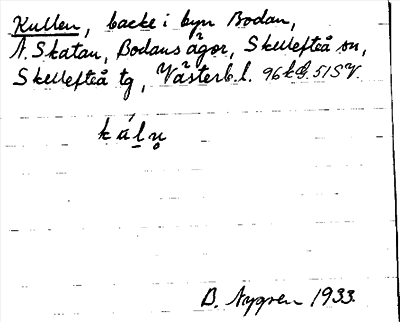 Kullen, backe i byn Bodan,
N. Skatan, Bodans ägor, Skellefteå sn,
Skellefteå tg, Västerb. l. 96 k G. 51 S V.
B. Nygren 1933.